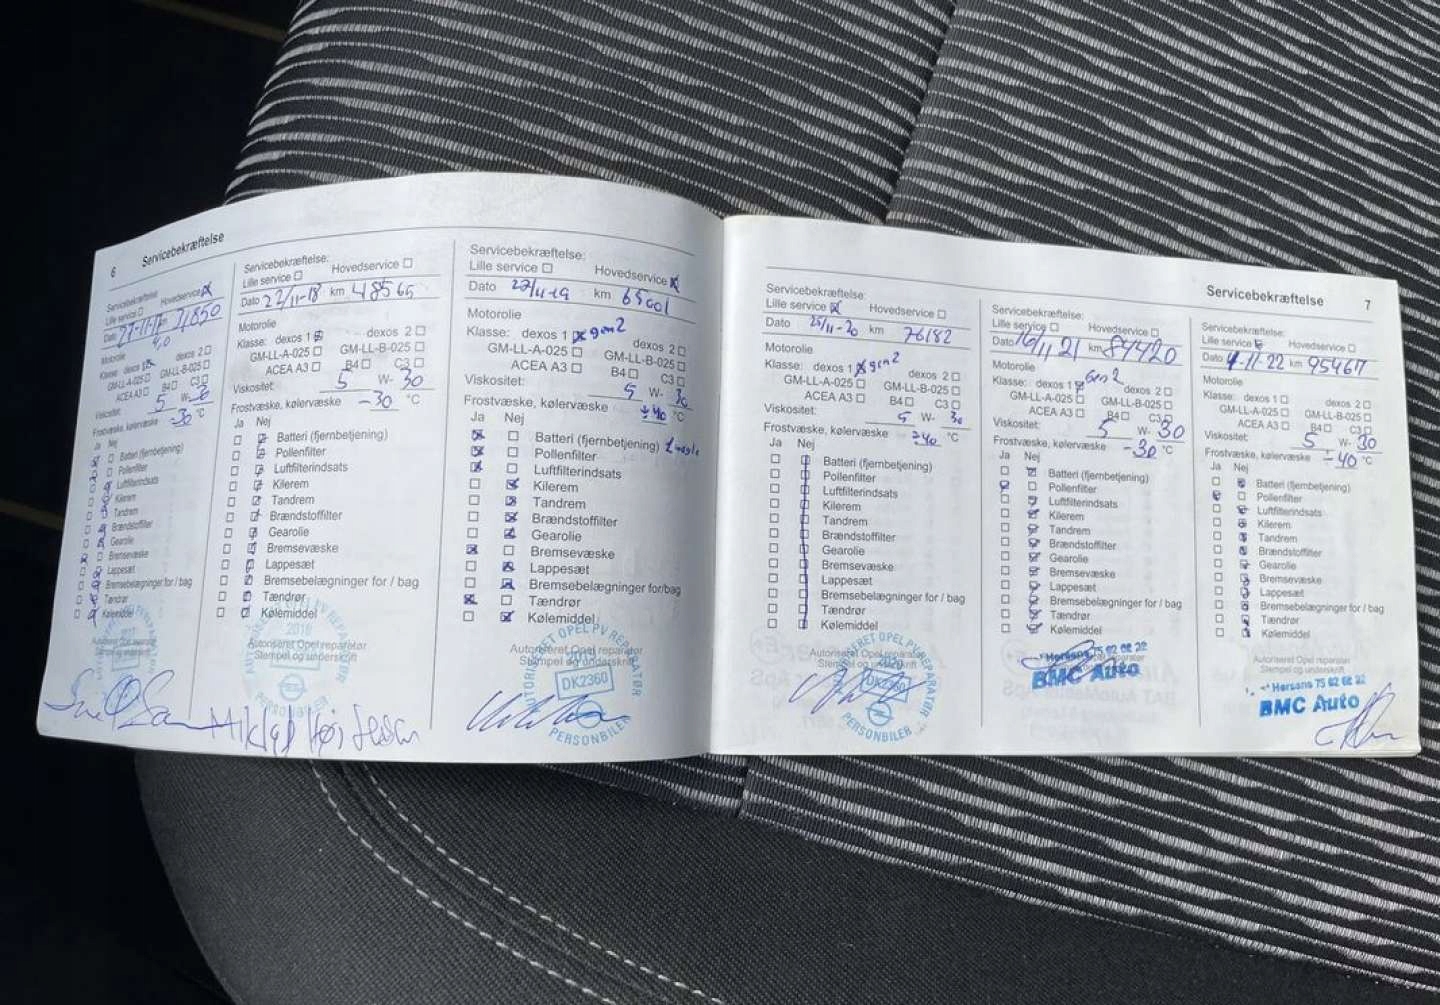 6 Servicebekræftelse
Servicebekræftelse
Lille service Hovedservice
Dato 27-11-17 km 31850
Motorolie
Klasse: dexos 1 dexos 2
GM-LL-A-025 GM-LL-B-025
ACEA A3 B4 C3
Viskositet: 5 W- 30
Frostvæske, kølervæske -30 °C
Ja Nej
Batteri (fjernbetjening)
Pollenfilter
Luftfilterindsats
Kilerem
Tandrem
Brændstoffilter
Gearolie
Bremsevæske
Lappesæt
Bremsebelægninger for / bag
Tændrør
Kølemiddel
Autoriseret Opel reparatør
Stempel og underskrift
Servicebekræftelse:
Lille service Hovedservice
Dato 22/11-18 km 48565
Motorolie
Klasse: dexos 1 dexos 2
GM-LL-A-025 GM-LL-B-025
ACEA A3 B4 C3
Viskositet: 5 W- 30
Frostvæske, kølervæske -30 °C
Ja Nej
Batteri (fjernbetjening)
Pollenfilter
Luftfilterindsats
Kilerem
Tandrem
Brændstoffilter
Gearolie
Bremsevæske
Lappesæt
Bremsebelægninger for / bag
Tændrør
Kølemiddel
Autoriseret Opel reparatør
Stempel og underskrift
2018
PERSONBILER
Servicebekræftelse:
Lille service Hovedservice
Dato 27/11-19 km 65001
Motorolie
Klasse: dexos 1 gen2 dexos 2
GM-LL-A-025 GM-LL-B-025
ACEA A3 B4 C3
Viskositet: 5 W- 30
Frostvæske, kølervæske ÷40 °C
Ja Nej
Batteri (fjernbetjening)
Pollenfilter
Luftfilterindsats
Kilerem
Tandrem
Brændstoffilter
Gearolie
Bremsevæske
Lappesæt
Bremsebelægninger for/bag
Tændrør
Kølemiddel
Autoriseret Opel reparatør
Stempel og underskrift
AUTORISERET OPEL PV REPARATØR
DK2360
PERSONBILER
Servicebekræftelse 7
Servicebekræftelse:
Lille service Hovedservice
Dato 25/11-20 km 76182
Motorolie
Klasse: dexos 1 gen2 dexos 2
GM-LL-A-025 GM-LL-B-025
ACEA A3 B4 C3
Viskositet: 5 W- 30
Frostvæske, kølervæske ÷40 °C
Ja Nej
Batteri (fjernbetjening)
Pollenfilter
Luftfilterindsats
Kilerem
Tandrem
Brændstoffilter
Gearolie
Bremsevæske
Lappesæt
Bremsebelægninger for / bag
Tændrør
Kølemiddel
Autoriseret Opel reparatør
Stempel og underskrift
AUTORISERET OPEL PV REPARATØR
DK2360
PERSONBILER
Servicebekræftelse:
Lille service Hovedservice
Dato 16/11 21 km 84420
Motorolie
Klasse: dexos 1 Gen2 dexos 2
GM-LL-A-025 GM-LL-B-025
ACEA A3 B4 C3
Viskositet: 5 W- 30
Frostvæske, kølervæske -30 °C
Ja Nej
Batteri (fjernbetjening)
Pollenfilter
Luftfilterindsats
Kilerem
Tandrem
Brændstoffilter
Gearolie
Bremsevæske
Lappesæt
Bremsebelægninger for / bag
Tændrør
Kølemiddel
Horsens 75 62 62 22
BMC Auto
Servicebekræftelse:
Lille service Hovedservice
Dato 4-11-22 km 95467
Motorolie
Klasse: dexos 1 dexos 2
GM-LL-A-025 GM-LL-B-025
ACEA A3 B4 C3
Viskositet: 5 W- 30
Frostvæske, kølervæske -40 °C
Ja Nej
Batteri (fjernbetjening)
Pollenfilter
Luftfilterindsats
Kilerem
Tandrem
Brændstoffilter
Gearolie
Bremsevæske
Lappesæt
Bremsebelægninger for / bag
Tændrør
Kølemiddel
Autoriseret Opel reparatør
Stempel og underskrift
Horsens 75 62 62 22
BMC Auto